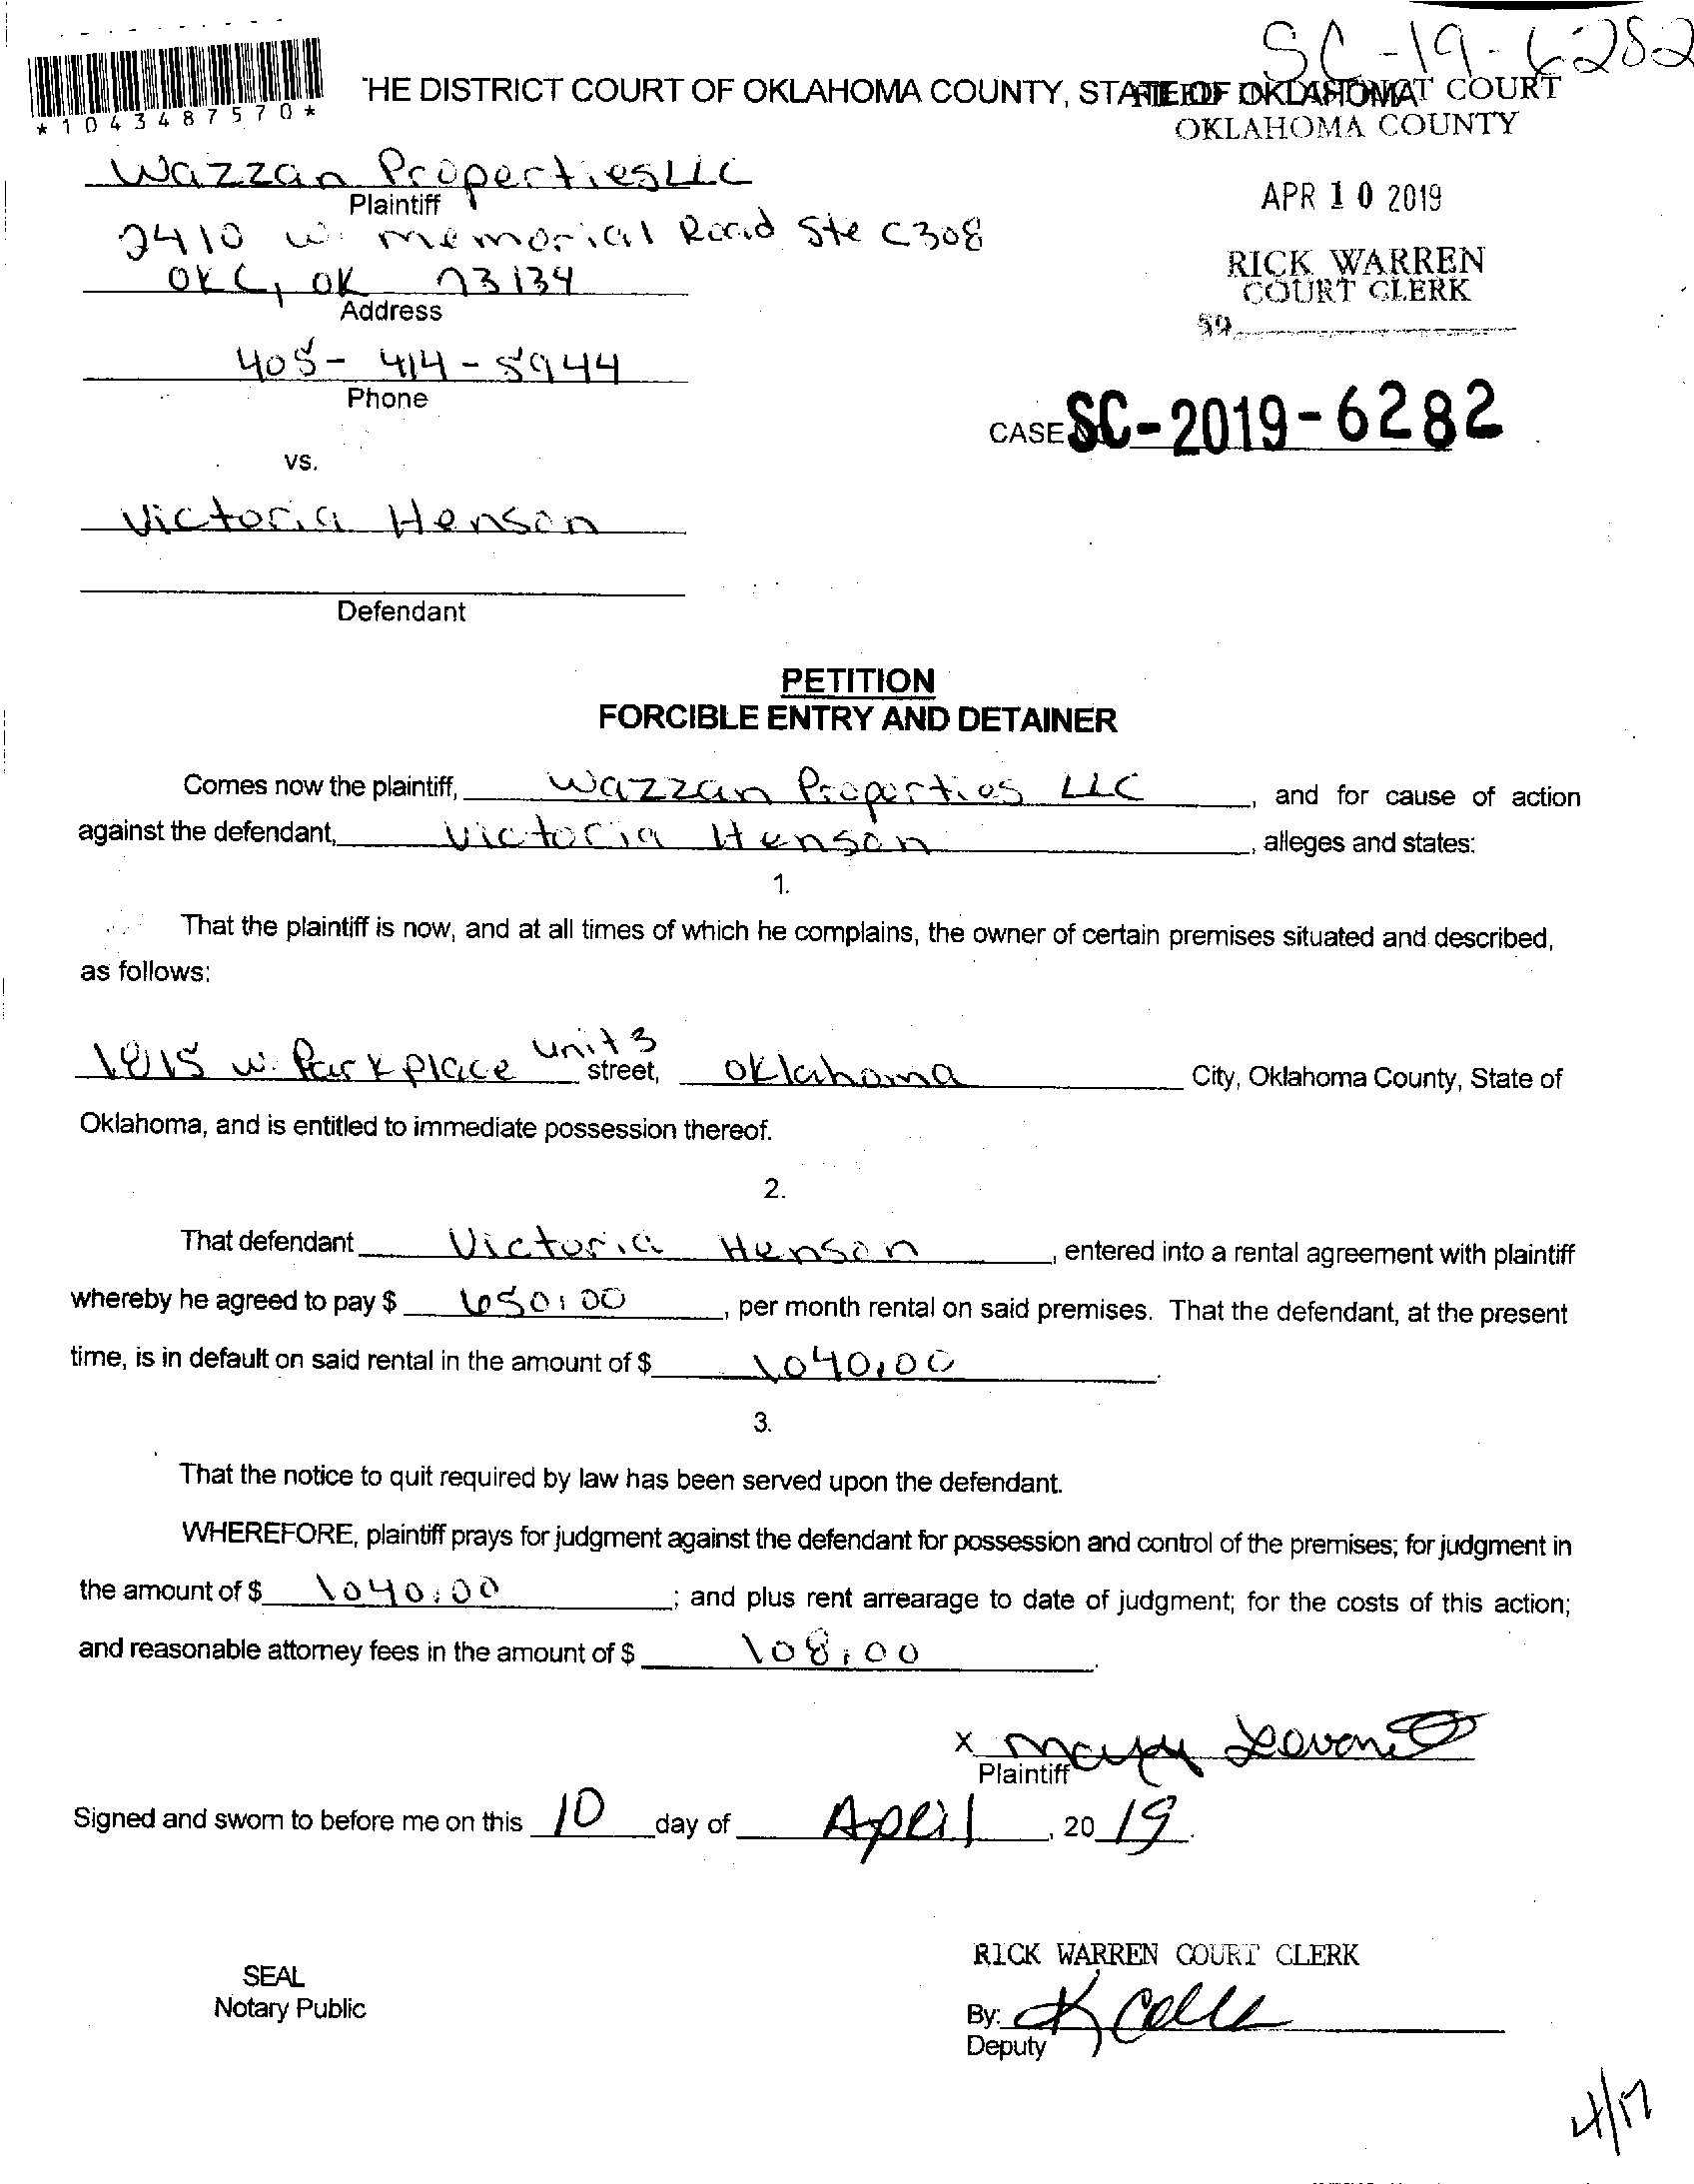 SC-19-6282
*1043487570*
THE DISTRICT COURT OF OKLAHOMA COUNTY, STATE OF OKLAHOMA
FILED IN DISTRICT COURT
OKLAHOMA COUNTY
Wazzan Properties LLC
Plaintiff
APR 10 2019
2410 W. Memorial Road Ste C308
OKC, OK 73134
Address
RICK WARREN
COURT CLERK
59
405-414-5944
Phone
CASE NO. SC-2019-6282
vs.
Victoria Henson
Defendant
PETITION
FORCIBLE ENTRY AND DETAINER
Comes now the plaintiff, Wazzan Properties LLC, and for cause of action
against the defendant, Victoria Henson, alleges and states:
1.
That the plaintiff is now, and at all times of which he complains, the owner of certain premises situated and described,
as follows:
1815 w. Park place unit 3 street, oklahoma City, Oklahoma County, State of
Oklahoma, and is entitled to immediate possession thereof.
2.
That defendant Victoria Henson, entered into a rental agreement with plaintiff
whereby he agreed to pay $ 650.00, per month rental on said premises. That the defendant, at the present
time, is in default on said rental in the amount of $ 1040.00.
3.
That the notice to quit required by law has been served upon the defendant.
WHEREFORE, plaintiff prays for judgment against the defendant for possession and control of the premises; for judgment in
the amount of $ 1040.00; and plus rent arrearage to date of judgment; for the costs of this action;
and reasonable attorney fees in the amount of $ 108.00.
X
Plaintiff
Signed and sworn to before me on this 10 day of April, 20 19.
RICK WARREN COURT CLERK
SEAL
Notary Public
By:
Deputy
4/17